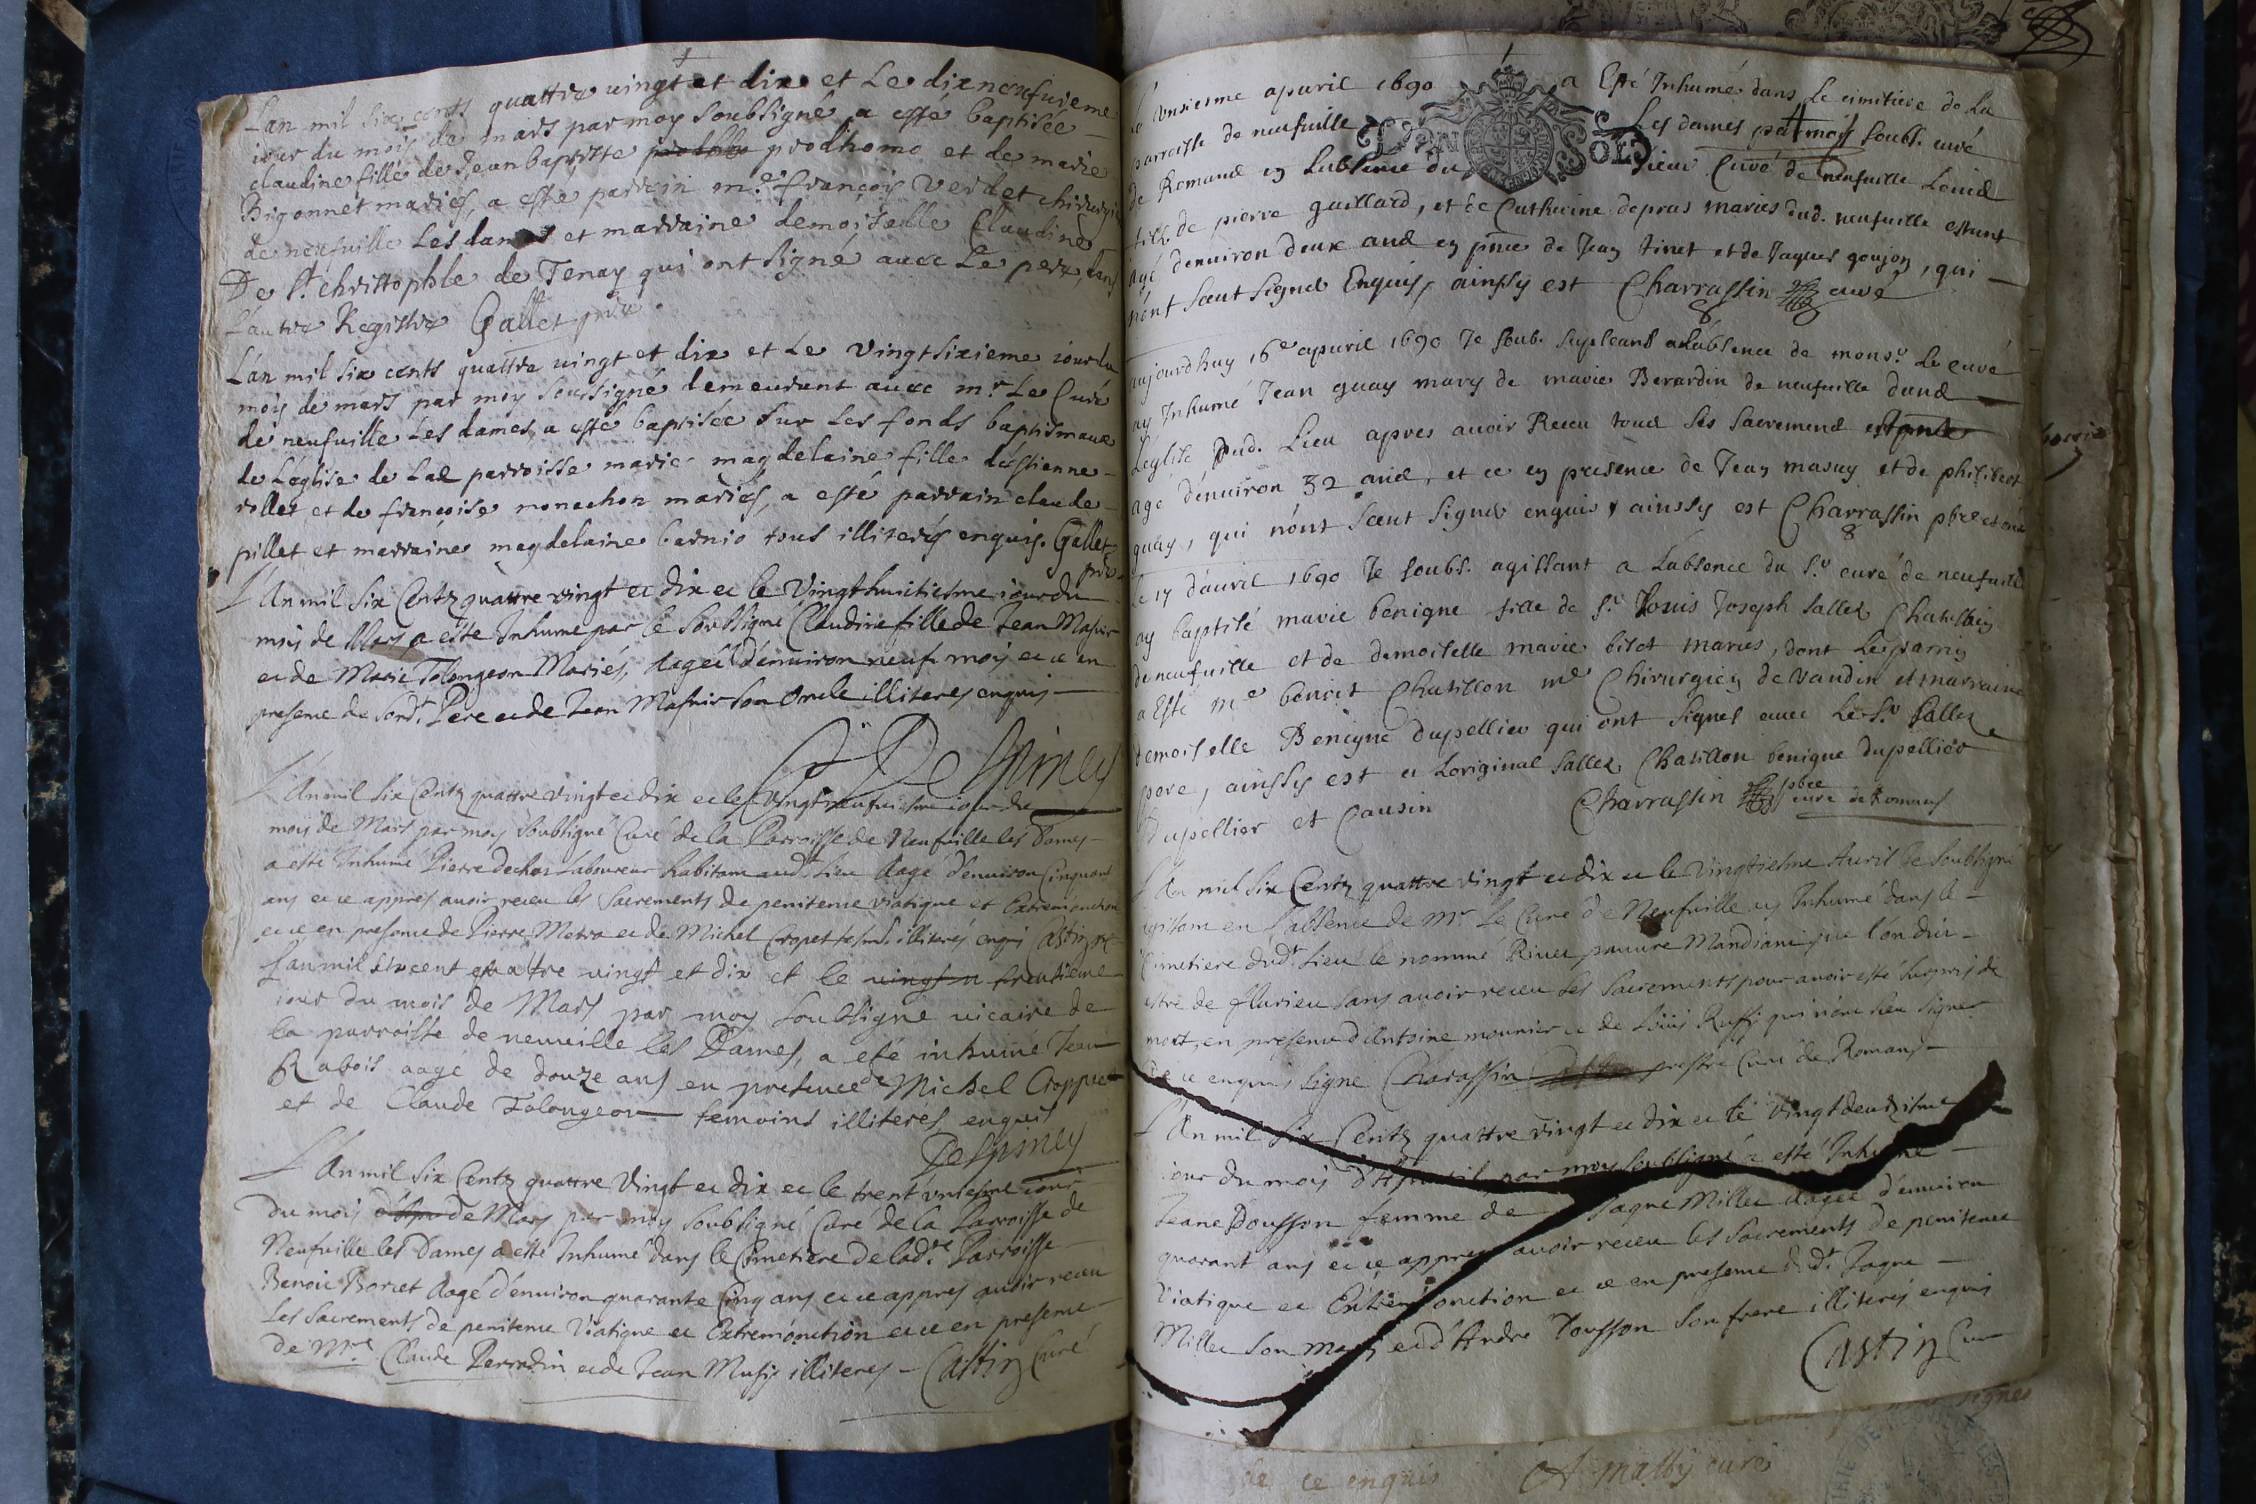 Lan mil six cents quattre vingt et dix et Le dixneufuieme
iour du mois de mars par moy soubsigné a esté baptisée
claudine fille de Jean baptiste prodhome et de marie
Bigonnet mariés, a esté parrain me françois Verdet chirurgi
de neufuille Les dames et marraine demoiselle Claudine
De st christophle de Tenay qui ont signé auec Le pere, dans
L'autre Registre Gallet
L'an mil six cents quattre vingt et dix et Le vingtsixieme iour du
mois de mars par moy soussigné demeurant auec mr Le Curé
de neufuille Les dames a esté baptisée sur Les fonds baptismaux
de L'eglise de Lad parroisse marie magdelaine fille destienne
rollet et de françoise monachon mariés, a esté parrain claude
pillet et marraine magdelaine barnio tous illiterés enquis. Gallet
L'An mil six Centz quattre vingt et dix et le Vingthuictiesme iour du
mois de Mars a esté Inhumé par le soubsigné Claudine fille de Jean Masuir
et de Marie Tolongeon Mariés, aagée d'enuiron neuf mois et ce en
presence de sond. Pere et de Jean Masuir son Oncle illiteres enquis
L'An mil six Centz quattre vingt et dix et le vingtneufuiesme iour du
mois de Mars par moy soubsigné Curé de la Parroisse de Neufuille les Dames
a esté Inhumé Pierre dechos Laboureur habitant aud. Lieu aagé d'enuiron Cinquante
ans et ce appres auoir receu les Sacrements de penitence viatique et Extremonction
et ce en presence de Pierre Metra et de Michel Cropet illiterés enquis Castin
Lan mil six cent quattre vingt et dix et le trentieme
iour du mois de Mars par moy soubsigné uicaire de
la parroisse de neuuille les Dames, a eté inhumé Jean
Rabois aagé de douze ans en presence de Michel Croppet
et de Claude Tolongeon temoins illiterés enquis
L'An mil six Centz quattre Vingt et dix et le trent'vniesme iour
du mois de Mars par moy soubsigné Curé de la Parroisse de
Neufuille les Dames a esté Inhumé dans le Cimetiere de lad. Parroisse
Benoit Borcet aagé d'enuiron quarante Cinq ans et ce appres auoir receu
Les Sacrements de penitence Viatique et Extremonction et ce en presence
de Mre Claude Perradin et de Jean Musy illiteres Castin Curé
Le unsiesme apuril 1690 a Esté Inhumé dans Le cimitiere de La
parroisse de neufuille Les dames par moy soubs. curé
de Romans en Labsence du sieur Curé de neufuille Louis
fils de pierre gaillard, et de Catherine depras mariés dud. neufuille estant
agé denuiron deux ans en pnce de Jean tinet et de Jaques goujon, qui
nont sceut signer Enquis, ainssy est Charrassin curé
aujourdhuy 16e apuril 1690 Je soub. supleant a Labsence de monsr Le curé
ay Inhumé Jean guay mary de marie Berardin de neufuille dans
Leglise dud. Lieu apres auoir Receu tous ses sacremens
agé denuiron 32 ans, et ce en presence de Jean masuy et de philibert
guay, qui n'ont sceut signer enquis ainssy est Charrassin pbre
Le 17 d'auril 1690 Je soubs. agissant a Labsence du sr curé de neufuille
ay baptisé marie benigne fille de sr Louis Joseph salles Chatellain
de neufuille et de demoiselle marie bitot mariés, dont Le parrain
a Esté me benoit Chatillon me Chirurgien de Vandin et marraine
demoiselle Benigne dupellier qui ont signes auec Le sr salles
pere, ainssy est a Loriginal salles Chatillon benigne dupellier
Dupellier et Causin Charrassin pbre curé de Romans
L'An mil six Centz quattre vingt et dix et le vingtiesme Auril le soubsigné
agissant en l'absence de Mr Le Curé de Neufuille ay Inhumé dans le
Cimetiere dud. Lieu le nommé Riuet pauure Mandiant que l'on dit
estre de flurieu sans auoir receu les Sacrements pour auoir esté surpris de
mort, en presence d'Antoine mounier et de Louis Ruffy qui n'ont sceu signer
de ce enquis signé Charassin prestre Curé de Romans
L'An mil six Centz quattre vingt et dix et le Vingtdeuxiesme
iour du mois d'Apuril par moy soubsigné a esté Inhumé
Jeane Dousson femme de Jaque Millet aagée d'enuiron
quarant ans et ce appres auoir receu les Sacrements de penitence
Viatique et Extremonction et ce en presence dud. Jaque
Millet son mary et d'Andre Dousson son frere illiterés enquis
Castin Curé
de ce enquis